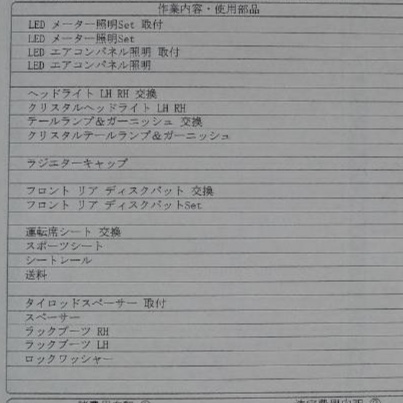 作業内容・使用部品
LED メーター照明Set 取付
LED メーター照明Set
LED エアコンパネル照明 取付
LED エアコンパネル照明
ヘッドライト LH RH 交換
クリスタルヘッドライト LH RH
テールランプ&ガーニッシュ 交換
クリスタルテールランプ&ガーニッシュ
ラジエターキャップ
フロント リア ディスクパット 交換
フロント リア ディスクパットSet
運転席シート 交換
スポーツシート
シートレール
送料
タイロッドスペーサー 取付
スペーサー
ラックブーツ RH
ラックブーツ LH
ロックワッシャー